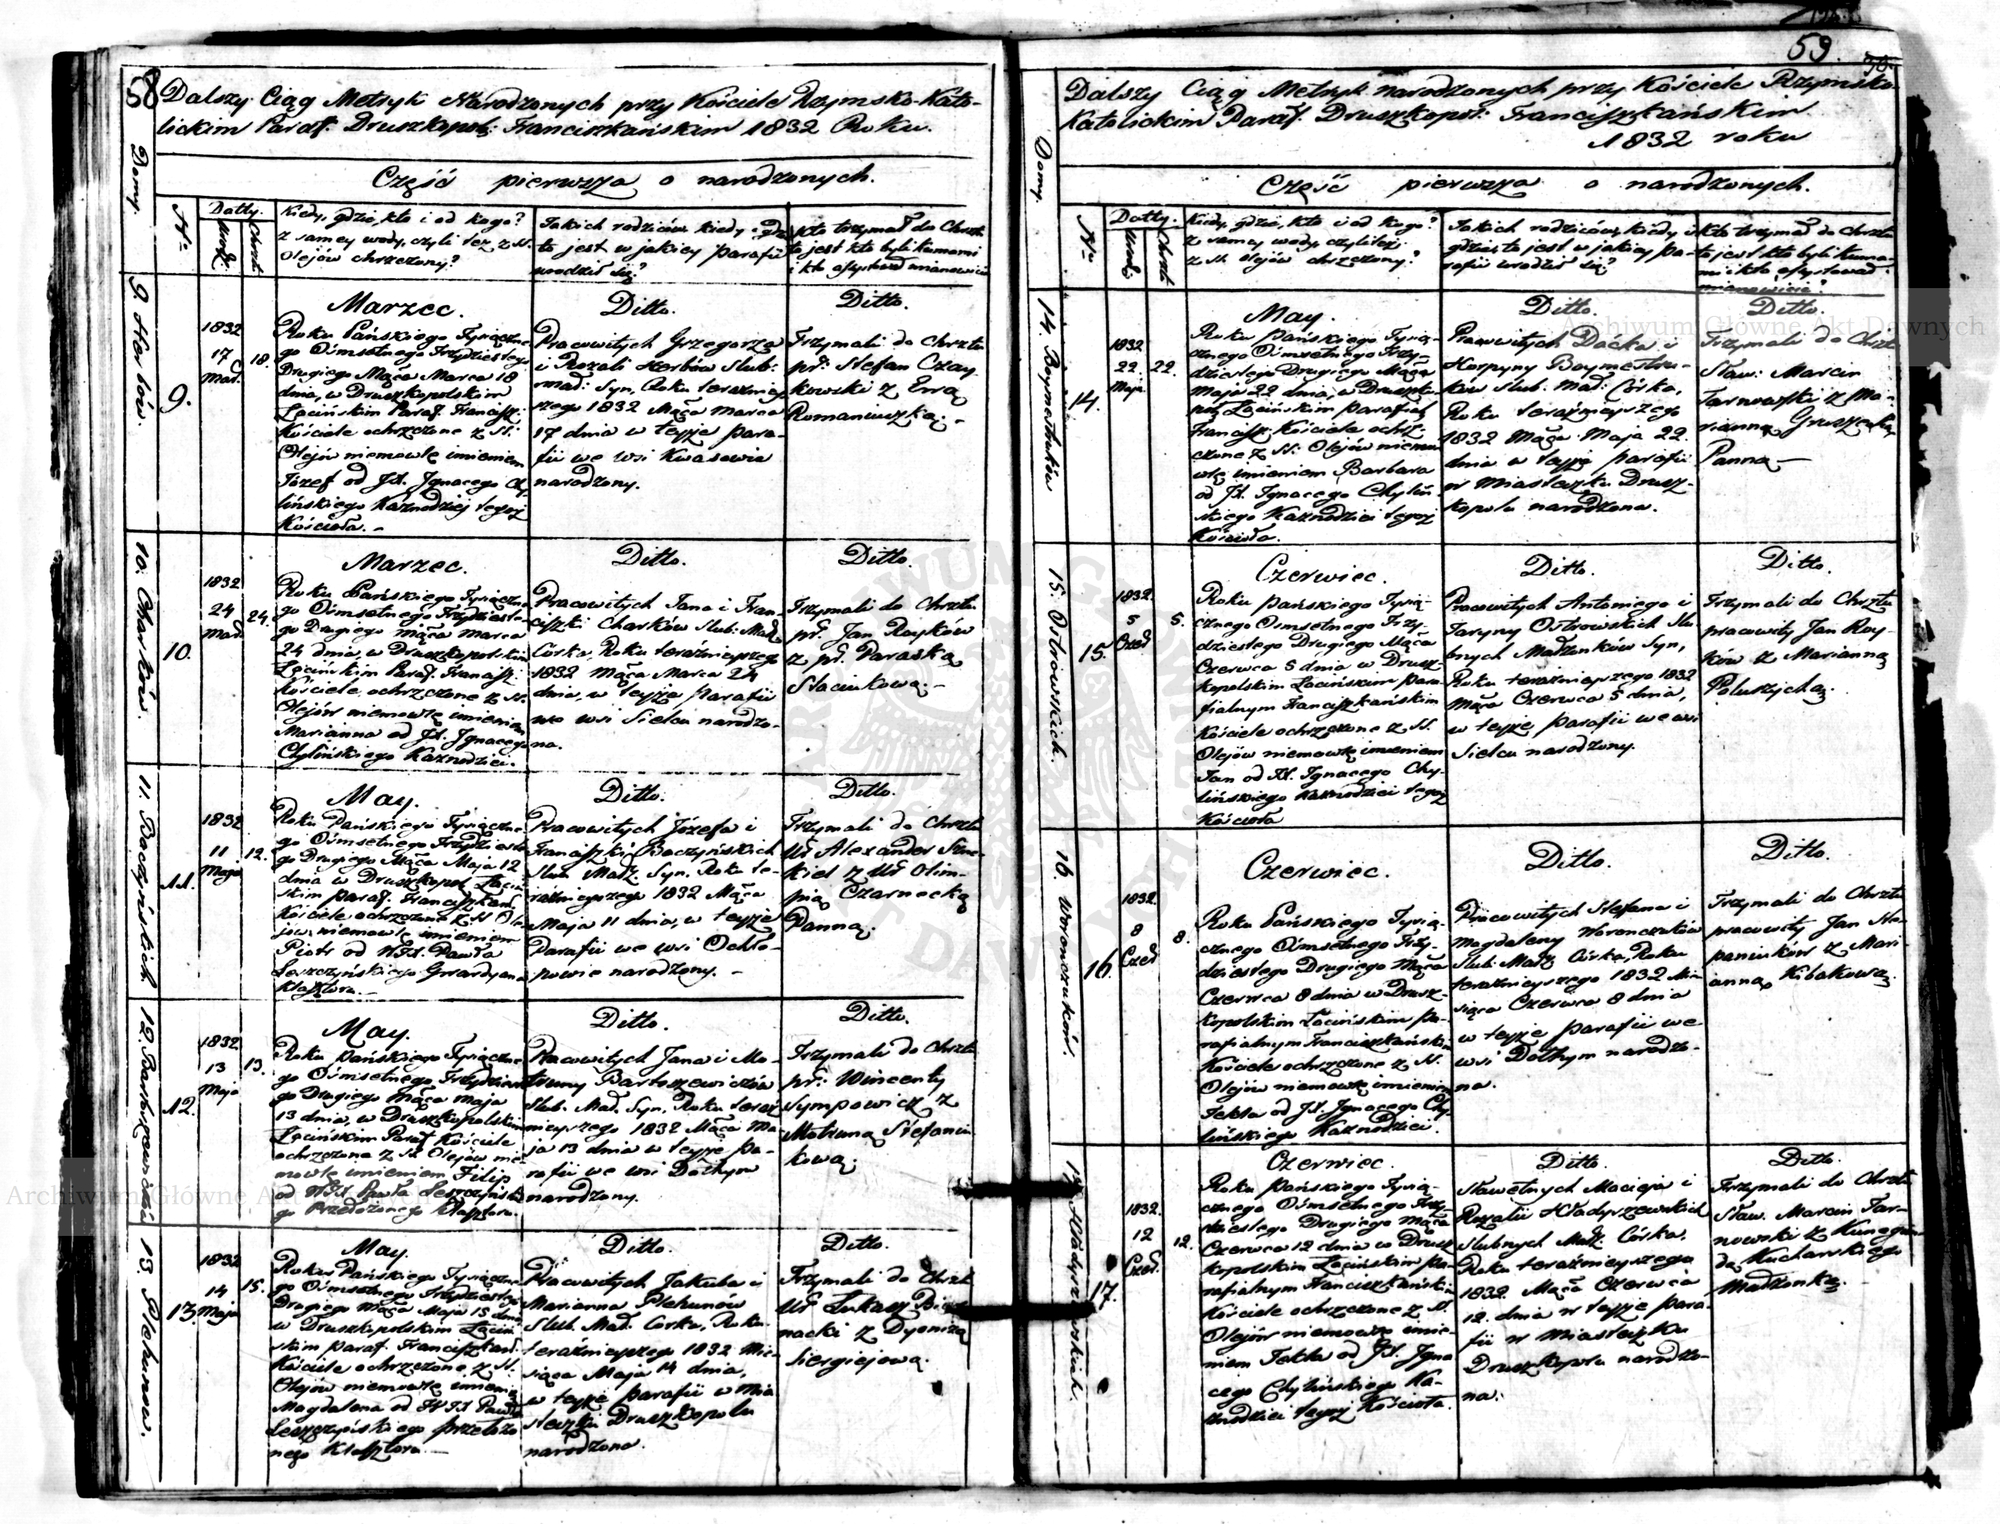 58
Dalszy Ciąg Metryk Narodzonych przy Kościele Rzymsko-Kato-
lickim Paraf. Druszkopol: Franciszkańskim 1832 Roku.
Część pierwsza o narodzonych.
Domy
Nro
Datty.
Urodz.
Chrztu
Kiedy, gdzie, kto i od kogo?
z samey wody, czyli też z S.
Olejów chrzczony?
Jakich rodziców, kiedy i gdzie
to jest w jakiey parafii
urodził się?
Kto trzymał do Chrztu
to jest kto byli Kumami
i kto asystował mianowicie
9.
9.
1832
17
Mar.
18.
Marzec.
Roku Pańskiego Tysiączne-
go Ośmsetnego Trzydziestego
Drugiego Mąca Marca 18
dnia, w Druszkopolskim
Łacińskim Paraf. Francisz:
Kościele ochrzczone z S.
Olejów niemowlę imieniem
Józef od JX. Ignacego Chy-
lińskiego Kaznodziej tegoż
Kościoła. -
Ditto.
Pracowitych Grzegorza
i Rozali Herbów Slub:
mał: Syn, Roku teraźniey
szego 1832 Mąca Marca
17 dnia w teyże para-
fii we wsi Kwasowie
narodzony.
Ditto.
Trzymali do Chrztu
pr: Stefan Czay
kowski z Ewą
Romaniuszką. -
10. Charków.
10.
1832
24
Mar.
24.
Marzec.
Roku Pańskiego Tysiączne
go Ośmsetnego Trzydzieste
go Drugiego Mąca Marca
24 dnia, w Druszkopolskim
Łacińskim Paraf. Francisz:
Kościele ochrzczone z S.
Olejów niemowlę imieniem
Marianna od JX. Ignacego
Chylińskiego Kaznodziei.
Ditto.
Pracowitych Jana i Fran-
ciszki Charków Slub: Mał.
Córka, Roku teraźnieyszego
1832 Mąca Marca 24
dnia, w teyże Parafii
we wsi Sielcu narodzo-
na.
Ditto.
Trzymali do Chrztu
pr. Jan Rayków
z pr. Paraską
Staciukową. -
11. Baczyńskich
11.
1832
11
Maja
12.
May.
Roku Pańskiego Tysiączne
go Ośmsetnego Trzydzieste
go Drugiego Mąca Maja 12
dnia w Druszkopol. Łaciń
skim paraf. Franciszkań.
Kościele ochrzczone z S. Ole
jów niemowlę imieniem
Piotr od WJX. Pawła
Leszczyńskiego Gwardyana
Klasztoru.
Ditto.
Pracowitych Józefa i
Franciszki Baczyńskich
Slub. Małż. Syn, Roku te-
raźnieyszego 1832 Mąca
Maja 11 dnia, w teyże
Parafii we wsi Ochło-
powie narodzony. -
Ditto.
Trzymali do Chrztu
Ur Alexander
kiel z Ur Olim-
pią Czarnecką
Panną.
12. Bartoszewiczów
12.
1832
13
Maja
13.
May.
Roku pańskiego Tysiączne
go Ośmsetnego Trzydzieste
go Drugiego Mąca maja
13 dnia, w Druszkopolskim
Łacińskim Paraf. Kościele
ochrzczone z S. Olejów nie-
mowlę imieniem Filip
od WJX. Pawła Leszczyńskie
go Przełożonego Klasztoru.
Ditto.
Pracowitych Jana i Mo-
truny Bartoszewiczów
Slub. Mał. Syn, Roku teraź
nieyszego 1832 Mąca Ma-
ja 13 dnia w teyże pa-
rafii we wsi Dołhym
narodzony.
Ditto.
Trzymali do Chrztu
pr: Wincenty
Sympowicz z
Motruną Stefania
kową.
13. Plehunów.
13.
1832
14
Maja
15.
May.
Roku Pańskiego Tysiączne
go Ośmsetnego Trzydziestego
Drugiego Mąca Maja 15 dnia
w Druszkopolskim Łaciń
skim paraf. Franciszkań.
Kościele ochrzczone z S.
Olejów niemowlę imieniem
Magdalena od WJX Pawła
Leszczyńskiego przełożo
nego Klasztoru. -
Ditto.
Pracowitych Jakuba i
Marianna Plehunów
Slub. Mał. Corka, Roku
teraźnieyszego 1832 Mie-
siąca Maja 14 dnia,
w teyże parafii w Mia
steczku Druszkopolu
narodzona.
Ditto.
Trzymali do Chrzt
Ur Łukasz
nacki z Dyonizą
Siergiejową.
59.
Dalszy Ciąg Metryk narodzonych przy Kościele Rzymsko
Katolickim Paraf. Druszkopol: Franciszkańskim
1832 roku
Część pierwsza o narodzonych.
Domy
Nro
Datty.
Urodz.
Chrztu
Kiedy, gdzie, kto i od kogo?
z samey wody, czyli też
z S. Olejów chrzczony?
Jakich rodziców, kiedy i
gdzie, to jest w jakiey pa-
rafii urodził się?
Kto trzymał do Chrztu
to jest kto byli Kuma-
mi i kto asystował
mianowicie?
14. Boymestruków
14.
1832
22.
Maja
22.
May.
Roku pańskiego Tysią-
cznego Ośmsetnego Trzy
dziestego Drugiego Mąca
Maja 22 dnia, w Druszko
pol. Łacińskim parafial.
Francisz. Kościele ochrz-
czone z S: Olejów niemo
wlę imieniem Barbara
od JX. Ignacego Chyliń-
skiego Kaznodziei tegoż
Kościoła.
Ditto.
Pracowitych Daćka i
Horpyny Boymestru-
ków Slub. Mał: Córka,
Roku teraźnieyszego
1832 Mąca Maja 22.
dnia w teyże parafii
w Miasteczku Drusz-
kopolu narodzona.
Ditto.
Trzymali do Chrzt.
Sław: Marcin
Tarnowski z Ma-
rianną Gruszecką
Panną -
15. Ostrowskich.
15.
1832.
5
Czer.
5.
Czerwiec.
Roku pańskiego Tysią-
cznego Ośmsetnego Trzy-
dziestego Drugiego Mąca
Czerwca 5 dnia w Drusz-
kopolskim Łacińskim para
fialnym Franciszkańskim
Kościele ochrzczone z S.
Olejów niemowlę imieniem
Jan od JX. Ignacego Chy-
lińskiego Kaznodziei tegoż
Kościoła
Ditto.
Pracowitych Antoniego i
Taryny Ostrowskich Slu
bnych Małżonków Syn,
Roku teraźnieyszego 1832
Mąca Czerwca 5 dnia,
w teyże parafii we wsi
Sielcu narodzony.
Ditto.
Trzymali do Chrztu
pracowity Jan Ray-
ków z Marianną
Poluszychą.
16. Woronczuków
16.
1832.
8
Czer.
8.
Czerwiec.
Roku Pańskiego Tysią-
cznego Ośmsetnego Trzy-
dziestego Drugiego Mąca
Czerwca 8 dnia w Drusz-
kopolskim Łacińskim pa-
rafialnym Franciszkańskim
Kościele ochrzczone z S.
Olejów niemowlę imieniem
Tekla od JX. Ignacego Chy-
lińskiego Kaznodziei.
Ditto.
Pracowitych Stefana i
Magdaleny Woronczuków
Slub. Małż. Córka, Roku
teraźnieyszego 1832 Mie
siąca Czerwca 8 dnia
w teyże parafii we
wsi Dołhym narodzo-
na.
Ditto.
Trzymali do Chrztu
pracowity Jan Ste-
paniuków z Mari-
anną Kibakową.
17. Władyszewskich.
17.
1832.
12
Czer.
12.
Czerwiec.
Roku pańskiego Tysią-
cznego Ośmsetnego Trzy-
dziestego Drugiego Mąca
Czerwca 12 dnia w Drusz
kopolskim Łacińskim pa-
rafialnym Franciszkańskim
Kościele ochrzczone z S.
Olejów niemowlę imie-
niem Tekla od JX. Igna
cego Chylińskiego Ka-
znodziei tegoż Kościoła.
Ditto.
Sławetnych Macieja i
Rozalii Władyszewskich
Slubnych Małż. Córka,
Roku teraźnieyszego
1832. Mąca Czerwca
12. dnia w teyże para-
fii w Miasteczku
Druszkopolu narodzo-
na.
Ditto.
Trzymali do Chrztu
Sław. Marcin Tar-
nowski z Kunegun
dą Kucharskiego
Małżonką.
Archiwum Główne Akt Dawnych